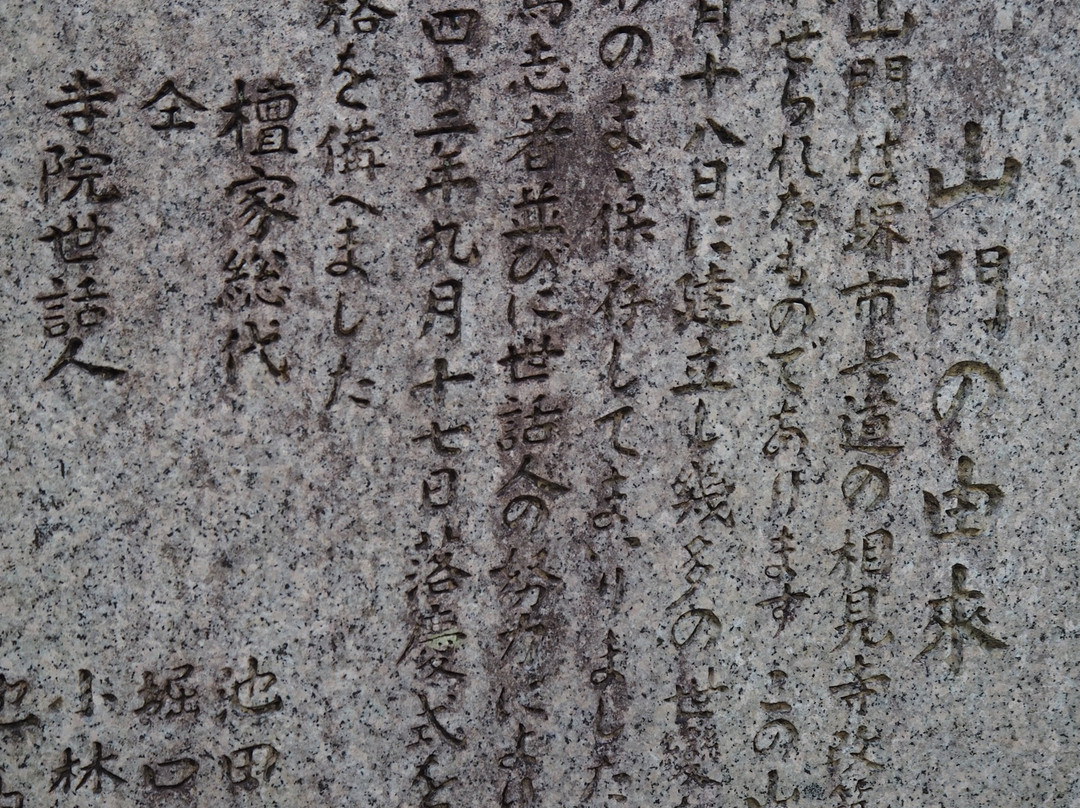 山門の由來
山門は堺市七道の相見寺
せられたものであります この山
月十八日に建立し幾多の世
のまゝ保存してまいりました
志者並びに世話人の努力により
四十二年九月十七日落慶式を
格を備へました
檀家総代 池田
仝 堀口
寺院世話人 小林